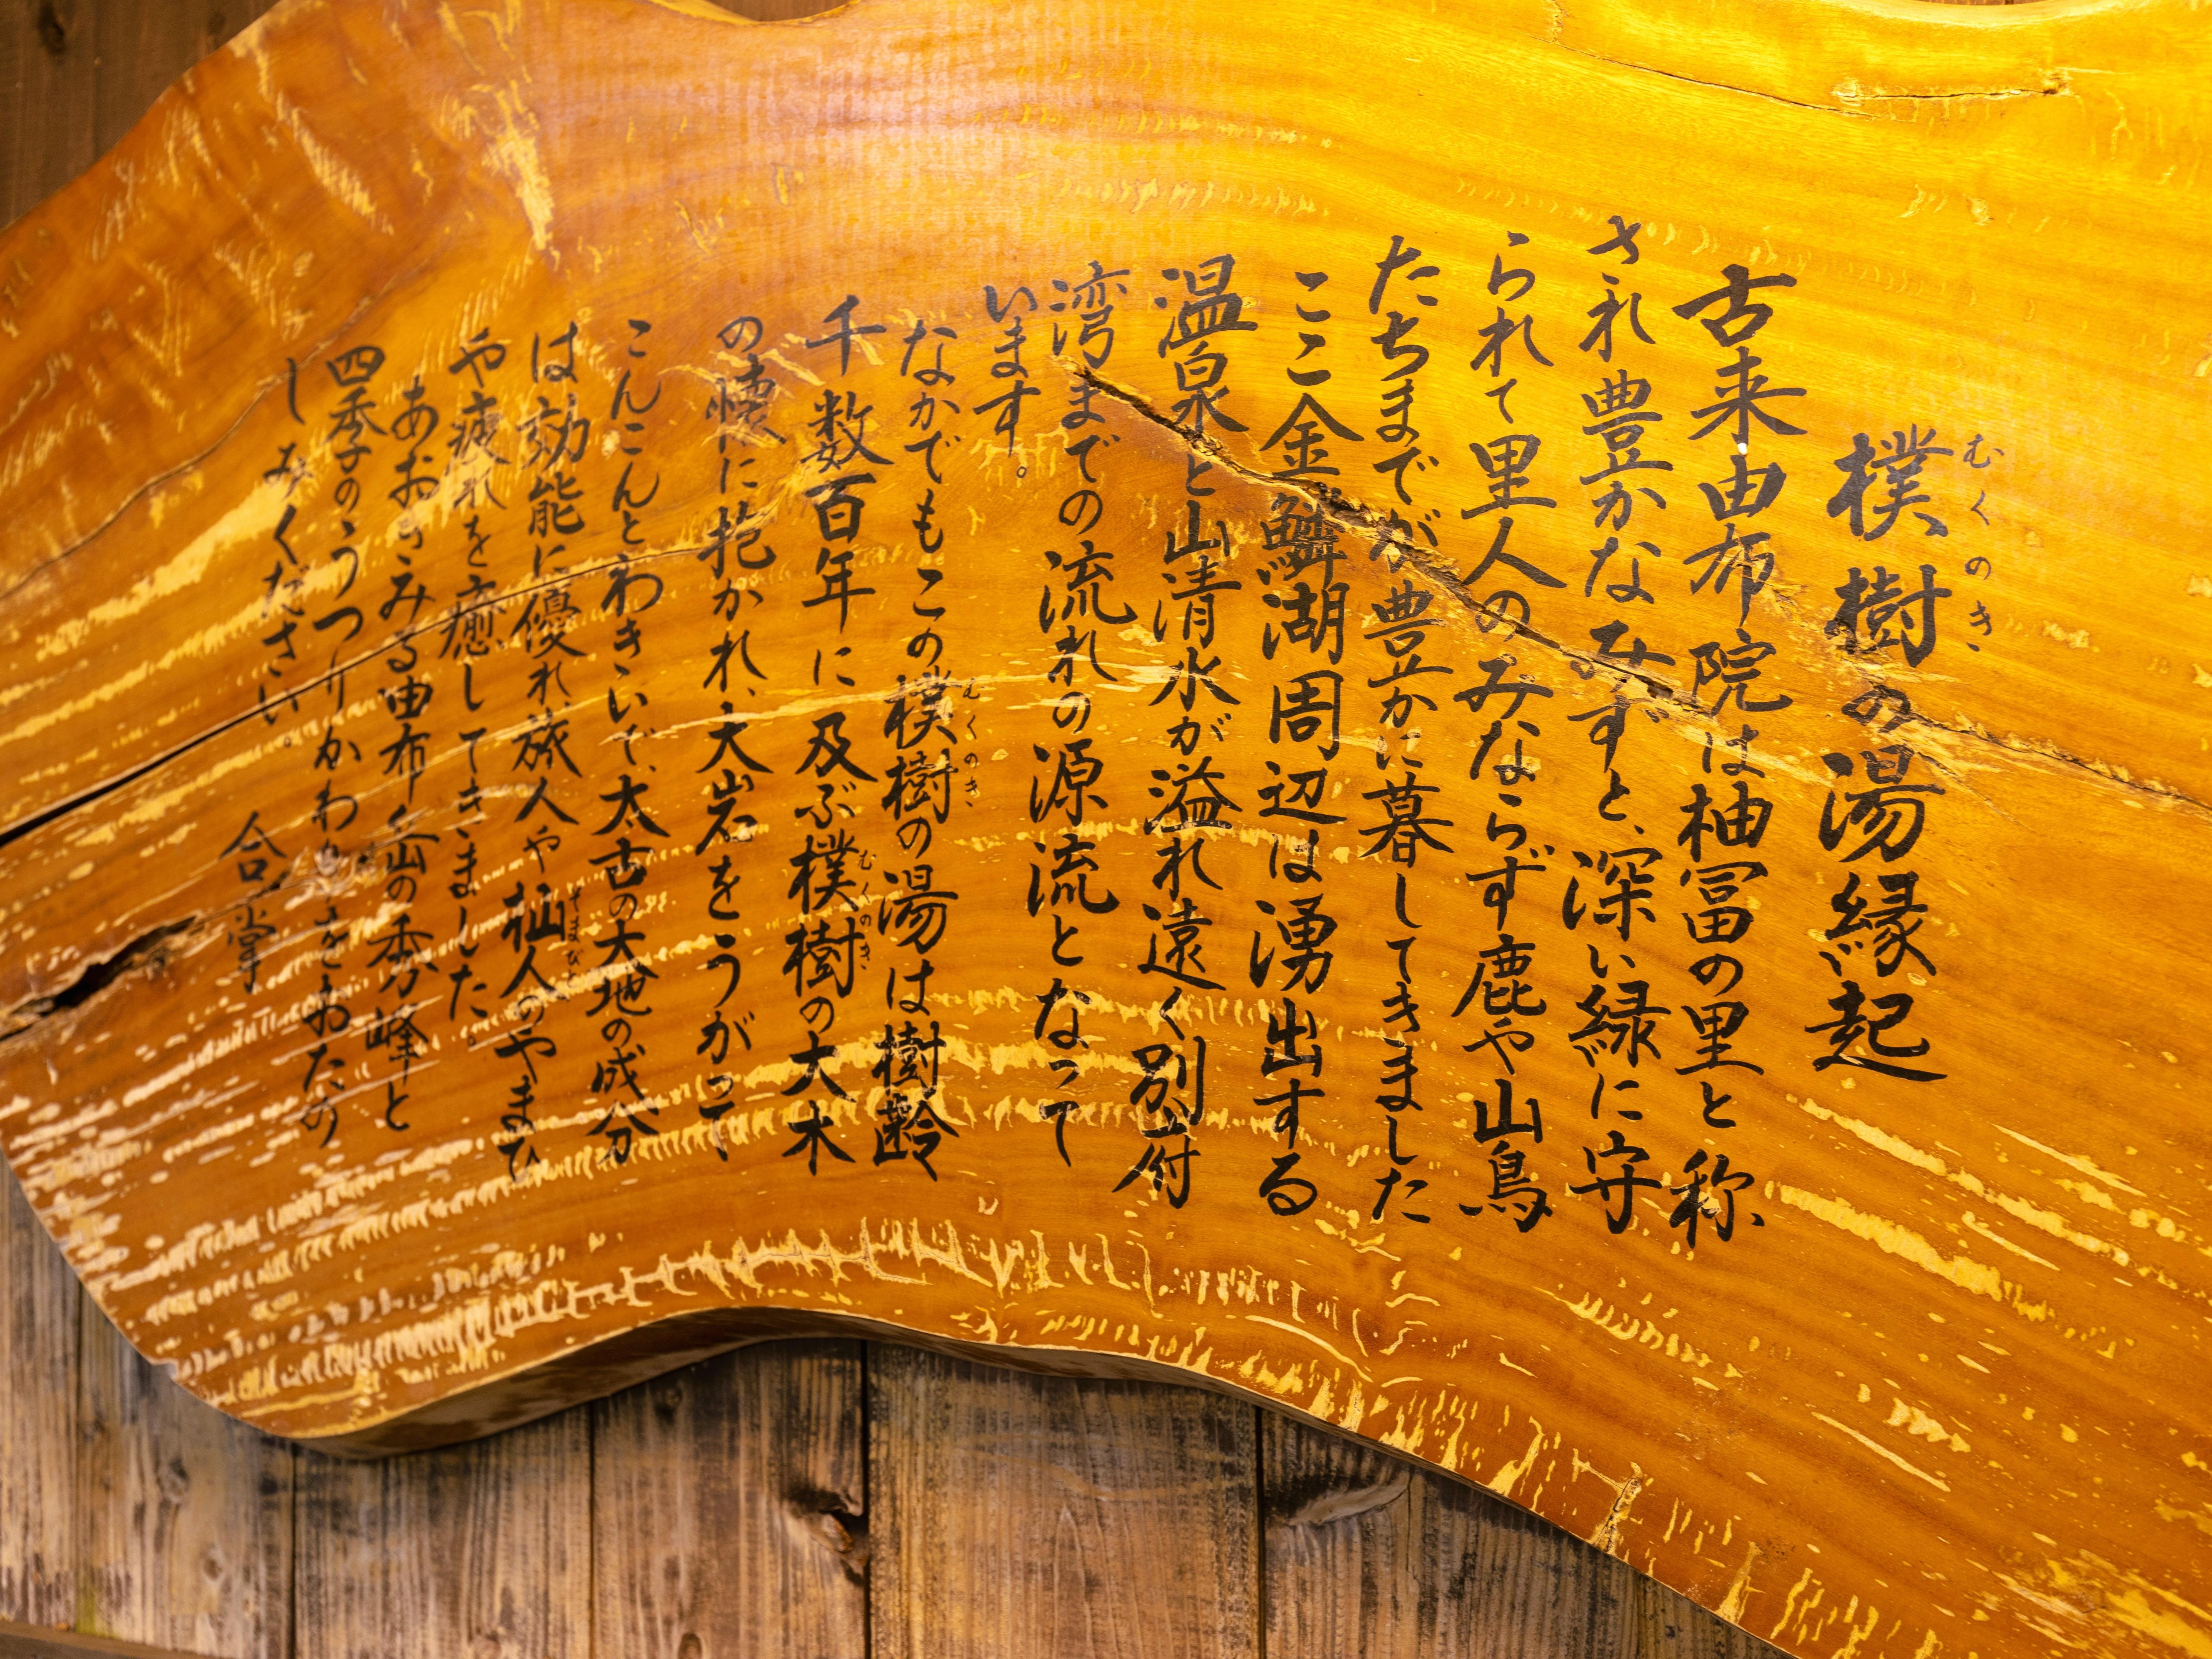 樸樹の湯縁起
むくのき
古来由布院は柚冨の里と称
され豊かなみずと、深い緑に守
られて里人のみならず鹿や山鳥
たちまでが豊かに暮してきました
ここ金鱗湖周辺は湧出する
温泉と山清水が溢れ遠く別府
湾までの流れの源流となって
います。
なかでもこの樸樹の湯は樹齢
むくのき
千数百年に及ぶ樸樹の大木
むくのき
の懐に抱かれ、大岩をうがって
こんこんとわきいで、太古の大地の成分
は効能に優れ、旅人や仙人のやまひ
や疲れを癒してきました。
あおぎみる由布岳の秀峰と
四季のうつりかわりをおたの
しみください。
合掌